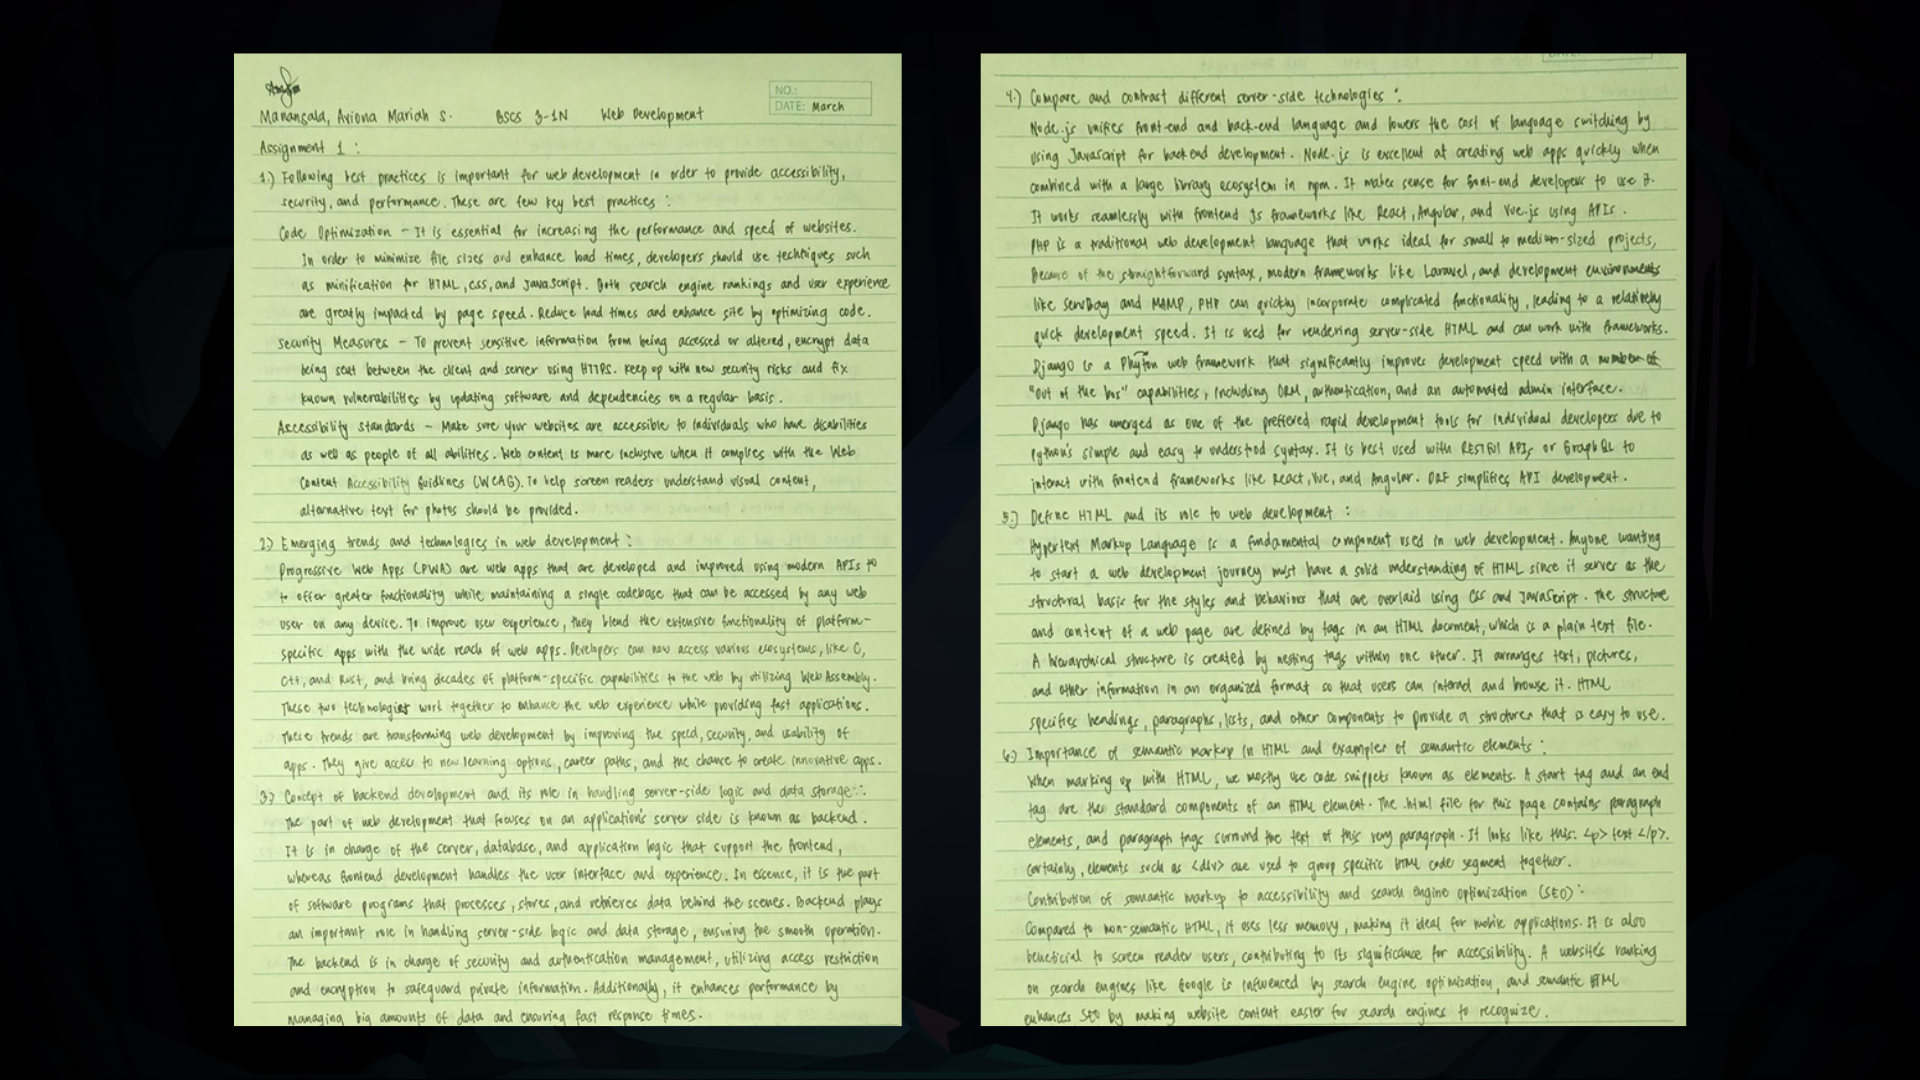 NO.:
Manansala, Aviona Mariah S. BSCS 3-1N Web Development DATE: March
Assignment 1 :
1.) Following best practices is important for web development in order to provide accessibility,
security, and performance. These are few key best practices :
Code Optimization - It is essential for increasing the performance and speed of websites.
In order to minimize file sizes and enhance load times, developers should use techniques such
as minification for HTML, CSS, and JavaScript. Both search engine rankings and user experience
are greatly impacted by page speed. Reduce load times and enhance site by optimizing code.
Security Measures - To prevent sensitive information from being accessed or altered, encrypt data
being sent between the client and server using HTTPS. Keep up with new security risks and fix
known vulnerabilities by updating software and dependencies on a regular basis.
Accessibility Standards - Make sure your websites are accessible to individuals who have disabilities
as well as people of all abilities. Web content is more inclusive when it complies with the Web
Content Accessibility Guidlines (WCAG). To help screen readers understand visual content,
alternative text for photos should be provided.
2.) Emerging trends and technologies in web development :
Progressive Web Apps (PWA) are web apps that are developed and improved using modern APIs to
to offer greater functionality while maintaining a single codebase that can be accessed by any web
user on any device. To improve user experience, they blend the extensive functionality of platform-
specific apps with the wide reach of web apps. Developers can now access various ecosystems, like C,
C++, and Rust, and bring decades of platform-specific capabilities to the web by utilizing WebAssembly.
These two technologies work together to enhance the web experience while providing fast applications.
These trends are transforming web development by improving the speed, security, and usability of
apps. They give access to new learning options, career paths, and the chance to create innovative apps.
3.) Concept of backend development and its role in handling server-side logic and data storage :
The part of web development that focuses on an application's server side is known as backend.
It is in charge of the server, database, and application logic that support the frontend,
whereas frontend development handles the user interface and experience. In essence, it is the part
of software programs that processes, stores, and retrieves data behind the scenes. Backend plays
an important role in handling server-side logic and data storage, ensuring the smooth operation.
The backend is in charge of security and authentication management, utilizing access restriction
and encryption to safeguard private information. Additionally, it enhances performance by
managing big amounts of data and ensuring fast response times.
4.) Compare and contrast different server-side technologies :
Node.js unifies front-end and back-end language and lowers the cost of language switching by
using JavaScript for backend development. Node.js is excellent at creating web apps quickly when
combined with a large library ecosystem in npm. It makes sense for front-end developers to use it.
It works seamlessly with frontend JS frameworks like React, Angular, and Vue.js using APIs.
PHP is a traditional web development language that works ideal for small to medium-sized projects,
Because of the straightforward syntax, modern frameworks like Laravel, and development environments
like ServBay and MAMP, PHP can quickly incorporate complicated functionality, leading to a relatively
quick development speed. It is used for rendering server-side HTML and can work with frameworks.
Django is a Phyton web framework that significantly improves development speed with a number of
"out of the box" capabilities, including ORM, authentication, and an automated admin interface.
Django has emerged as one of the preffered rapid development tools for individual developers due to
Python's simple and easy to understand syntax. It is best used with RESTful APIs or GraphQL to
interact with frontend frameworks like React, Vue, and Angular. DRF simplifies API development.
5.) Define HTML and its role to web development :
Hypertext Markup Language is a fundamental component used in web development. Anyone wanting
to start a web development journey must have a solid understanding of HTML since it serves as the
structural basis for the styles and behaviors that are overlaid using CSS and JavaScript. The structure
and content of a web page are defined by tags in an HTML document, which is a plain text file.
A hierarchical structure is created by nesting tags within one other. It arranges text, pictures,
and other information in an organized format so that users can interact and browse it. HTML
specifies headings, paragraphs, lists, and other components to provide a structure that is easy to use.
6.) Importance of semantic markup in HTML and examples of semantic elements :
When marking up with HTML, we mostly use code snippets known as elements. A start tag and an end
tag are the standard components of an HTML element. The .html file for this page contains paragraph
elements, and paragraph tags surround the text of this very paragraph. It looks like this: <p> text </p>.
Certainly, elements such as <div> are used to group specific HTML code segment together.
Contribution of semantic markup to accessibility and search engine optimization (SEO) :
Compared to non-semantic HTML, it uses less memory, making it ideal for mobile applications. It is also
beneficial to screen reader users, contributing to its significance for accessibility. A website's ranking
on search engines like Google is influenced by search engine optimization, and semantic HTML
enhances SEO by making website content easier for search engines to recognize.